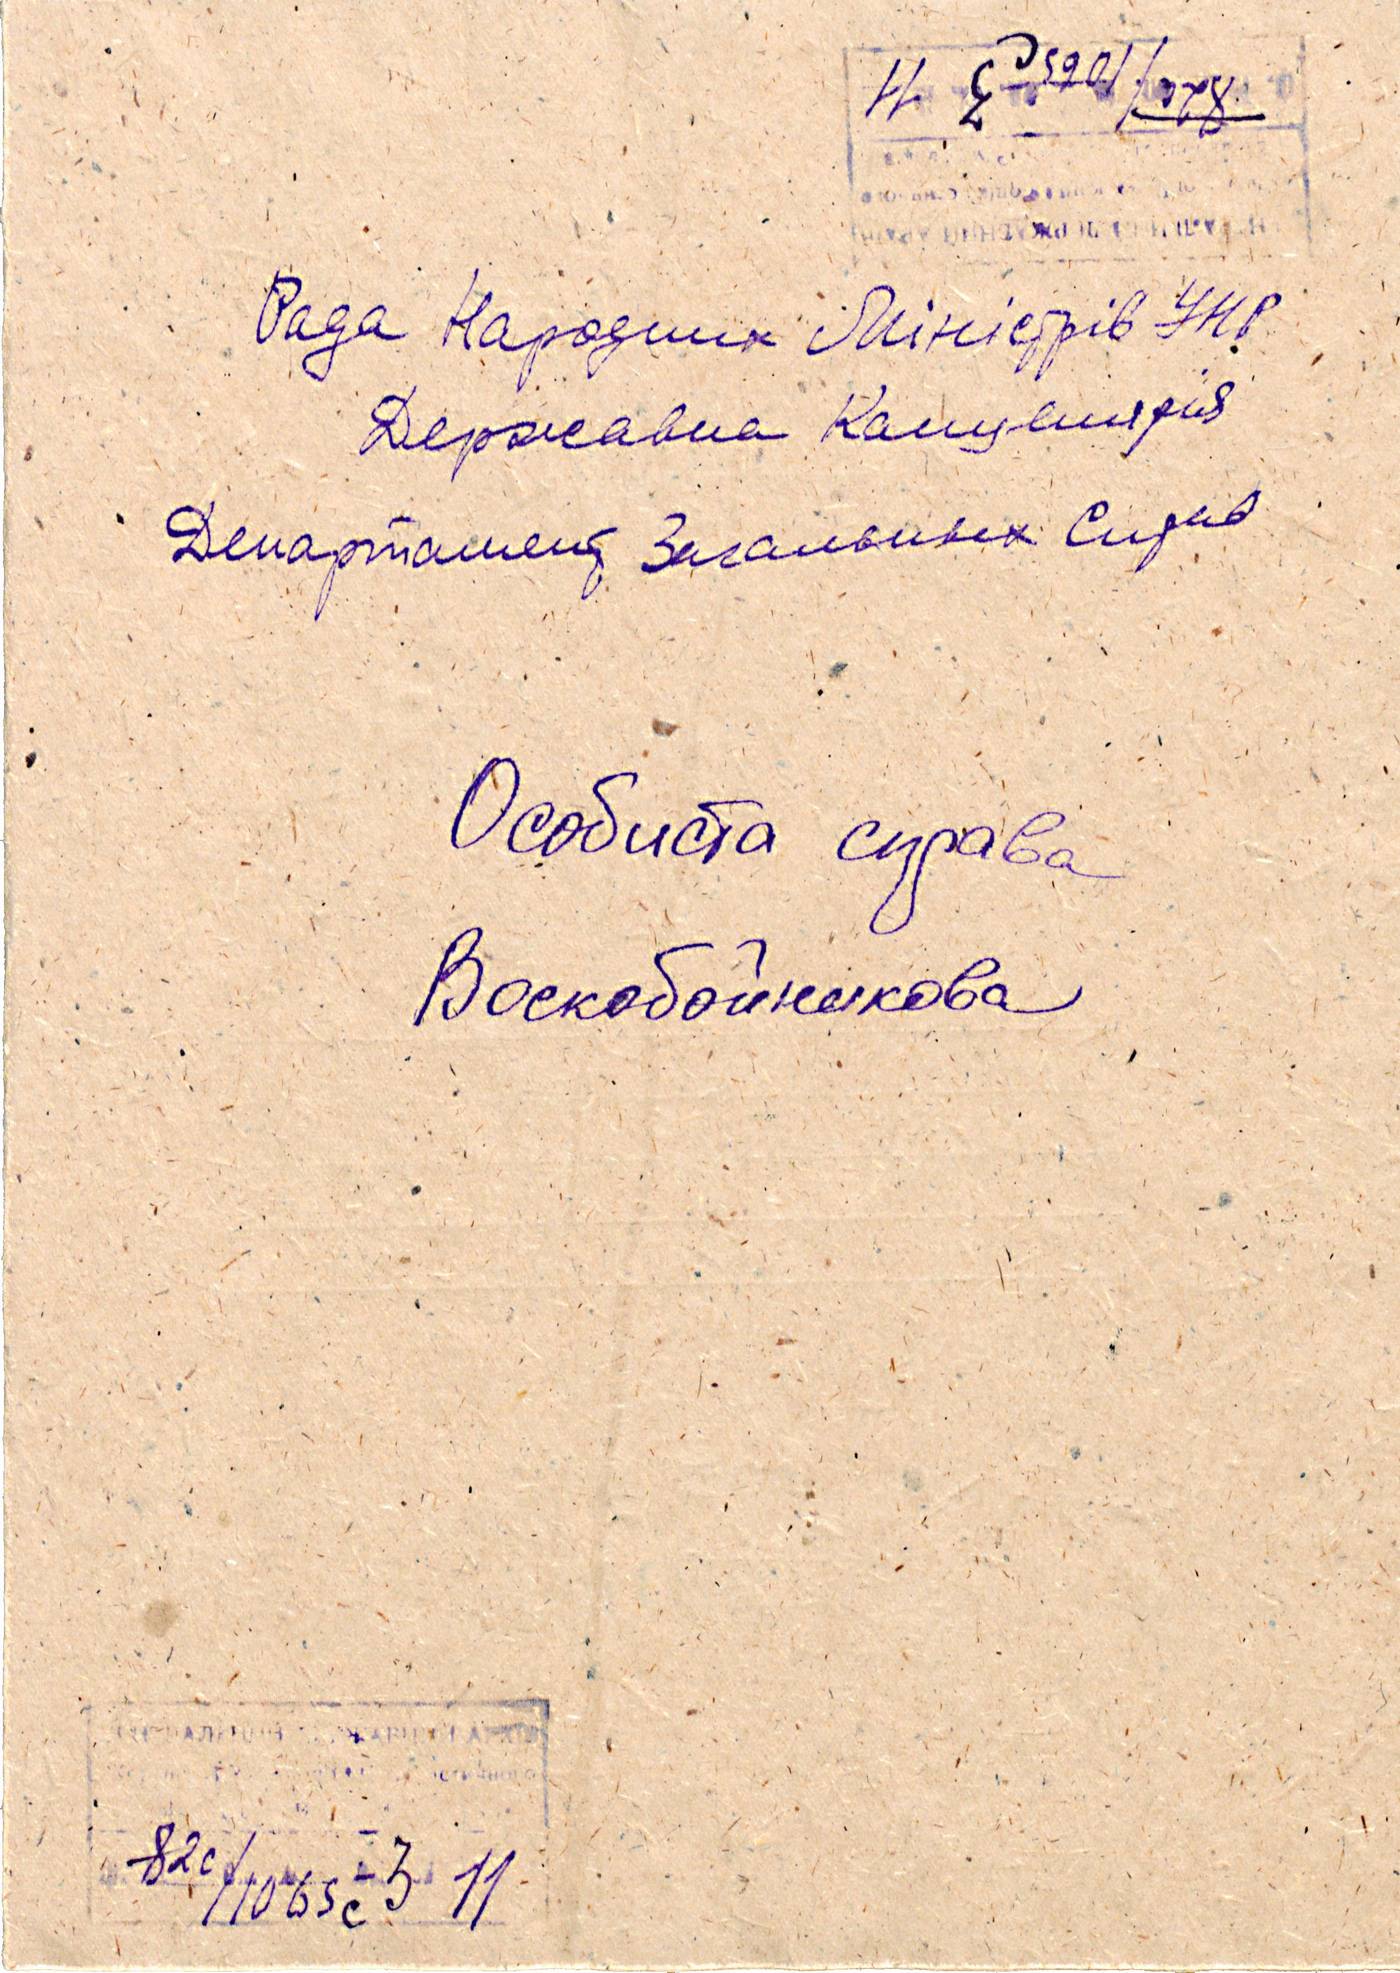 Рада Народних Міністрів УНР
Державна Канцелярія
Департамент Загальних Справ
Особиста справа
Воскобойникова
82с/1065с 3 11